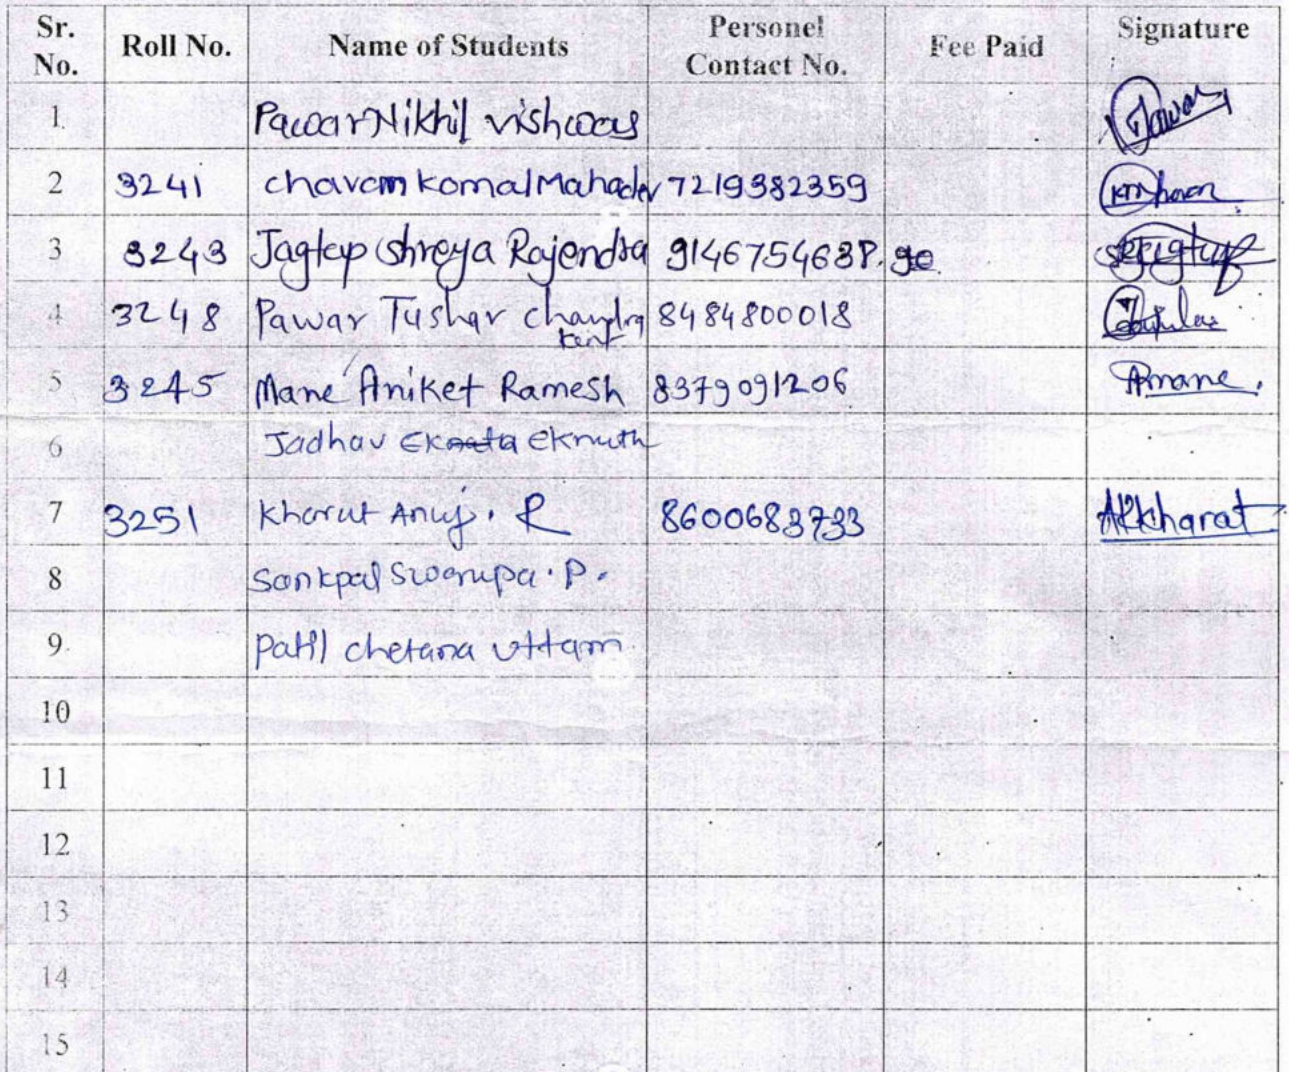 Sr. No. Roll No. Name of Students Personel Contact No. Fee Paid Signature
1 Pawar Nikhil vishwas Pawar
2 3241 chavan komal Mahadev 7219382359
3 3243 Jagtap Shreya Rajendra
4 3248 Pawar Tushar chandra kant 8484800018
5 3245 Mane Aniket Ramesh 8379091206 Amane.
6 Jadhav eknath
7 3251 Kharat Anuj. R 8600683733 ARkharat
8 Sankpal Swarupa. P.
9. Patil chetana uttam
10
11
12
13
14
15